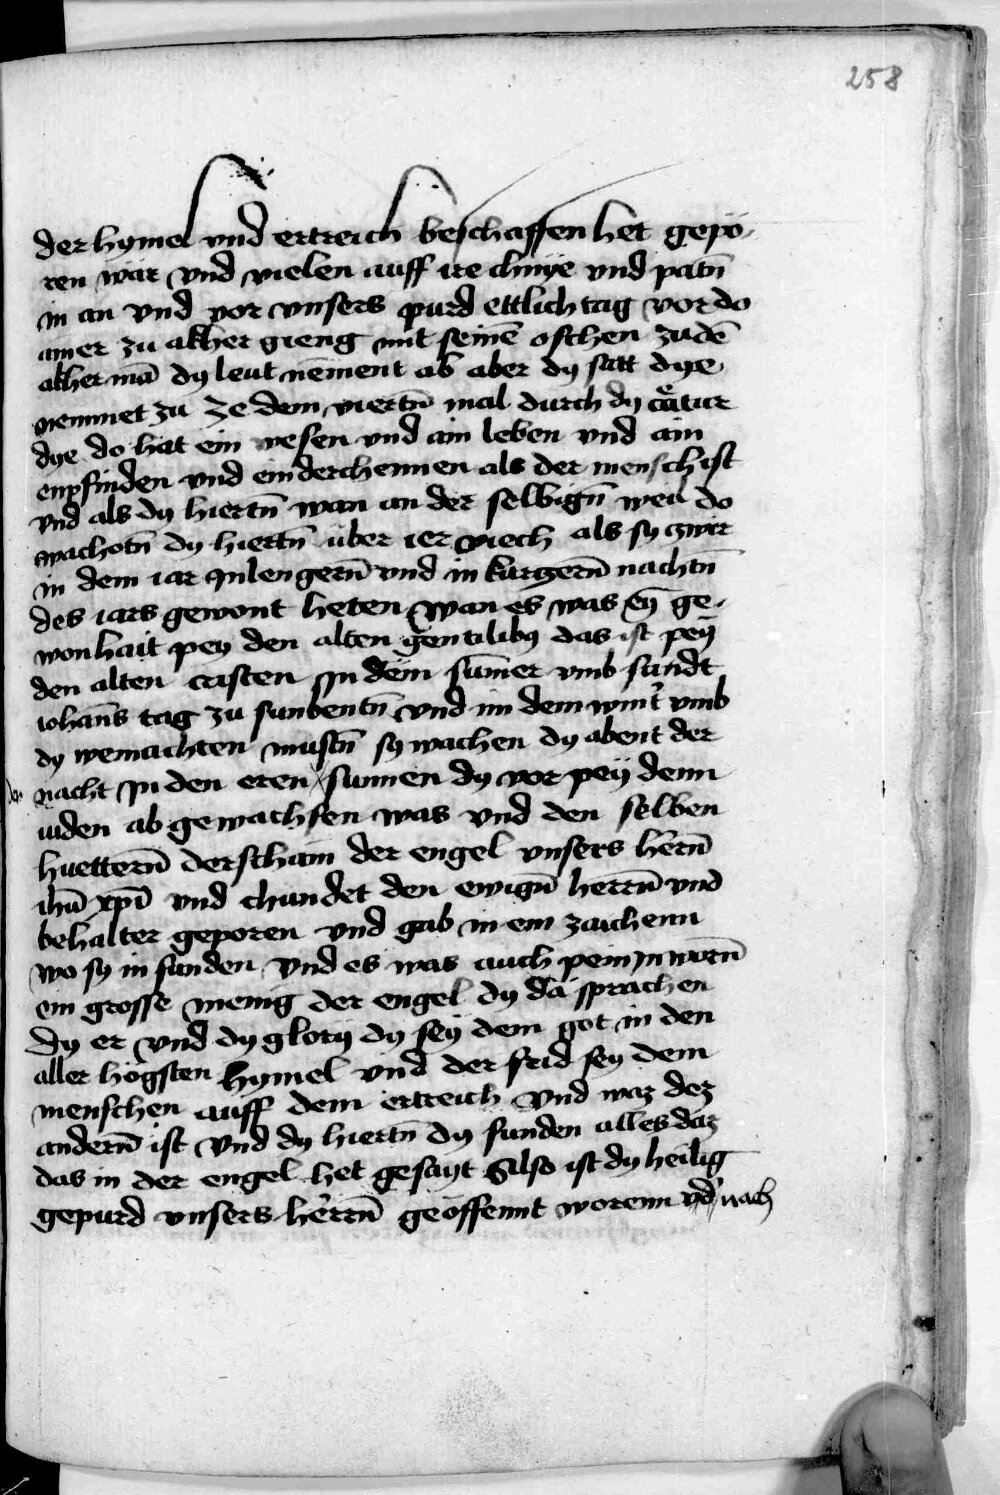 258
der hymel vnd ertreich beschaffen het gepo-
ren wär vnd vielen auff ire chnye vnd patn̄
in an vnd vor vnsers purd ettlich tag vor do
ainer zu akher gieng mit seinē ochsen zu dē
akher mā dy leut nēment ab aber dy satt dye
nemmet zu ze dem viertn̄ mal durch dy cātur
dye do hat ein wesen vnd ain leben vnd ain
enpfinden vnd ein derchennen als der mensch ist
vnd als dy hiertn̄ wan an der selbign̄ weil do
wachotn̄ dy hiertn̄ über ier viech als sy zwir
in dem iar In lengern̄ vnd in kurtzern̄ nachtn̄
des iars gewont heten wan es was eȳ ge-
wonhait pey den alten gentilibus das ist pey
den alten cristen In dem sūmer vmb sandt
iohāns tag zu sunbentn̄ vnd im dem wint̄ vmb
dy weinachten mustn̄ sy wachen dy abent der
nacht In den eren der sunnen dy vor pey denn
iuden ab gewachsen was vnd den selben
huettern̄ derscham der engel vnsers hern̄
ihū xpī vnd chundet den ewign̄ herrn̄ vnd
behalter geporen vnd gab in ein zaichenn
wo sy in funden vnd es was auch pein in warn̄
ein grosse menig der engel dy da sprachen
Dy er vnd dy glory dy sey dem got in den
aller högsten hymel vnd der frid sey dem
menschen auff dem ertreich vnd waz dez
andern̄ ist vnd dy hiertn̄ dy funden alles daz
das in der engel het gesayt Also ist dy heilig
gepurd vnsers herrn̄ geoffennt worenn vnd nach